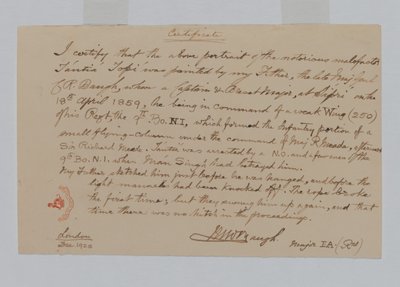 Certificate
I certify that the above portrait of the notorious malefactor
Tántia Topi was painted by my Father, the late Maj Genl
Baugh, when a Captain & Brevet Major, at Sipri on the
18th April 1859, he being in command of a weak Wing (250)
of his Regt, the 9th Bo. N.I., which formed the Infantry portion of a
small flying-column under the command of Maj R Meade, afterwards
Sir Richard Meade. Tantia was arrested by a N.O. and a few men of the
9th Bo. N.I. when Man Singh had betrayed him.
My Father sketched him just before he was hanged, and before the
light manacles had been knocked off. The rope broke
the first time; but they swung him up again, and that
time there was no hitch in the proceedings.
London
Dec 1925
Baugh
Major I.A. (Rtd)